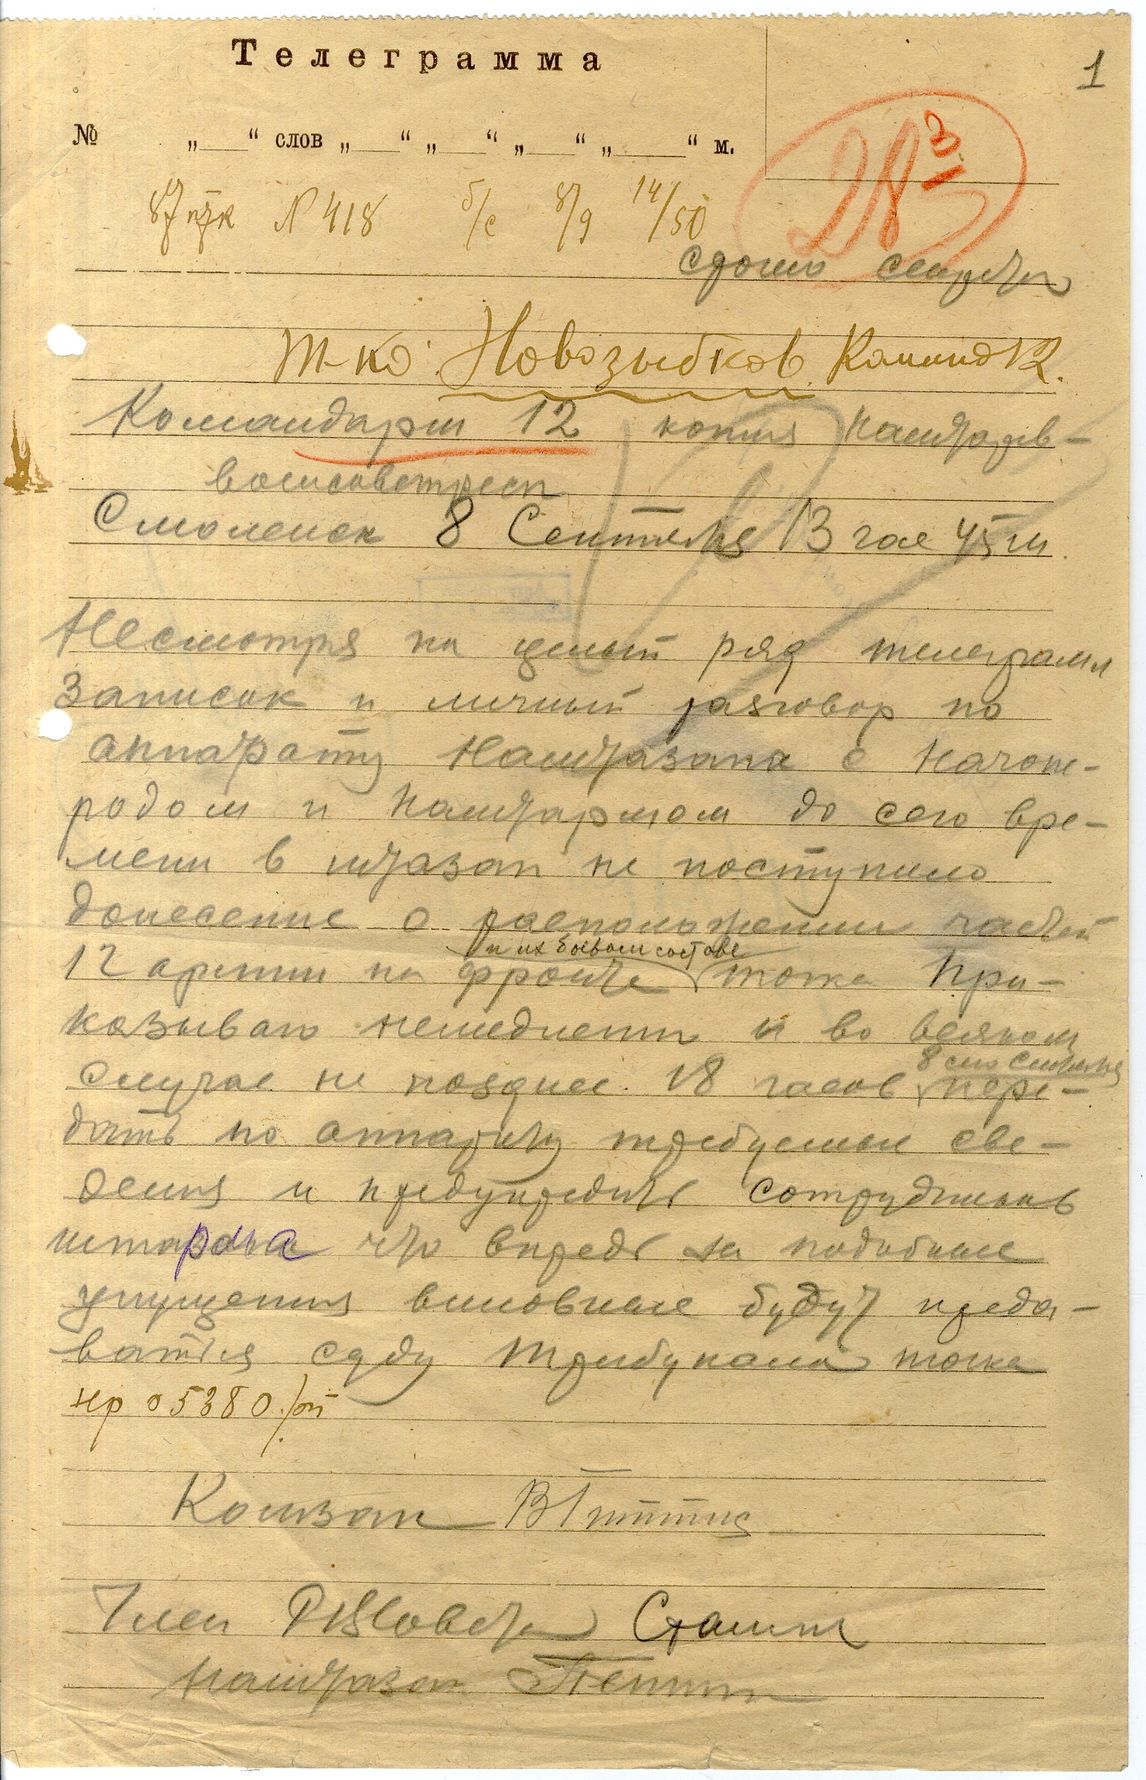 Телеграмма
1
№ „ “ слов „ “ „ “ „ “ „ “ м.
28 3
№ 418 б/с 8/9 14/50
срочно секретн
Новозыбков Команд 12.
Командарм 12 копия Наштарев-
воисоветреси
Смоленск 8 Сентября 13 час 45 м.
Несмотря на целый ряд телеграмм
записок и личный разговор по
аппарату Наштазапа с Начопе-
родом и Наштармом до сего вре-
мени в штазап не поступило
донесение о расположении частей
и их боевом составе
12 армии на фронте точка При-
казываю немедленно и во всяком
8 сего Сентября
случае не позднее 18 часов пере-
дать по аппарату требуемые све-
дения и предупредить сотрудников
штарма что впредь за подобные
упущения виновные будут преда-
ваться суду Трибунала точка
нр 05380/оп
Комзап В Гиттис
Член Ревсовета Сталин
Наштазап Петин